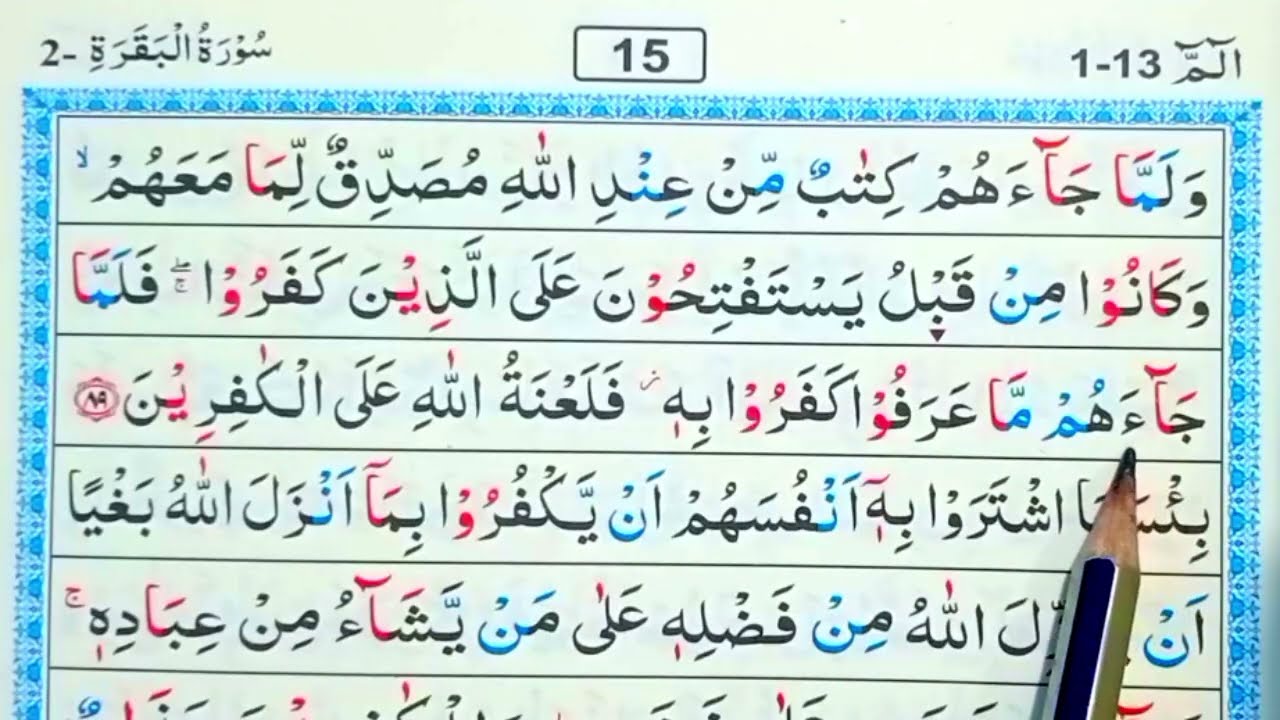 الٓمّٓ 1-13 15 سُوْرَةُ الْبَقَرَةِ -2
وَلَمَّا جَآءَهُمْ كِتٰبٌ مِّنْ عِنْدِ اللّٰهِ مُصَدِّقٌ لِّمَا مَعَهُمْ ۙ
وَكَانُوْا مِنْ قَبْلُ يَسْتَفْتِحُوْنَ عَلَى الَّذِيْنَ كَفَرُوْا ۚۖ فَلَمَّا
جَآءَهُمْ مَّا عَرَفُوْا كَفَرُوْا بِهٖ ؗ فَلَعْنَةُ اللّٰهِ عَلَى الْكٰفِرِيْنَ ۝٨٩
اشْتَرَوْا بِهٖٓ اَنْفُسَهُمْ اَنْ يَّكْفُرُوْا بِمَآ اَنْزَلَ اللّٰهُ بَغْيًا
اَنْ اللّٰهُ مِنْ فَضْلِهٖ عَلٰى مَنْ يَّشَآءُ مِنْ عِبَادِهٖ ۚ